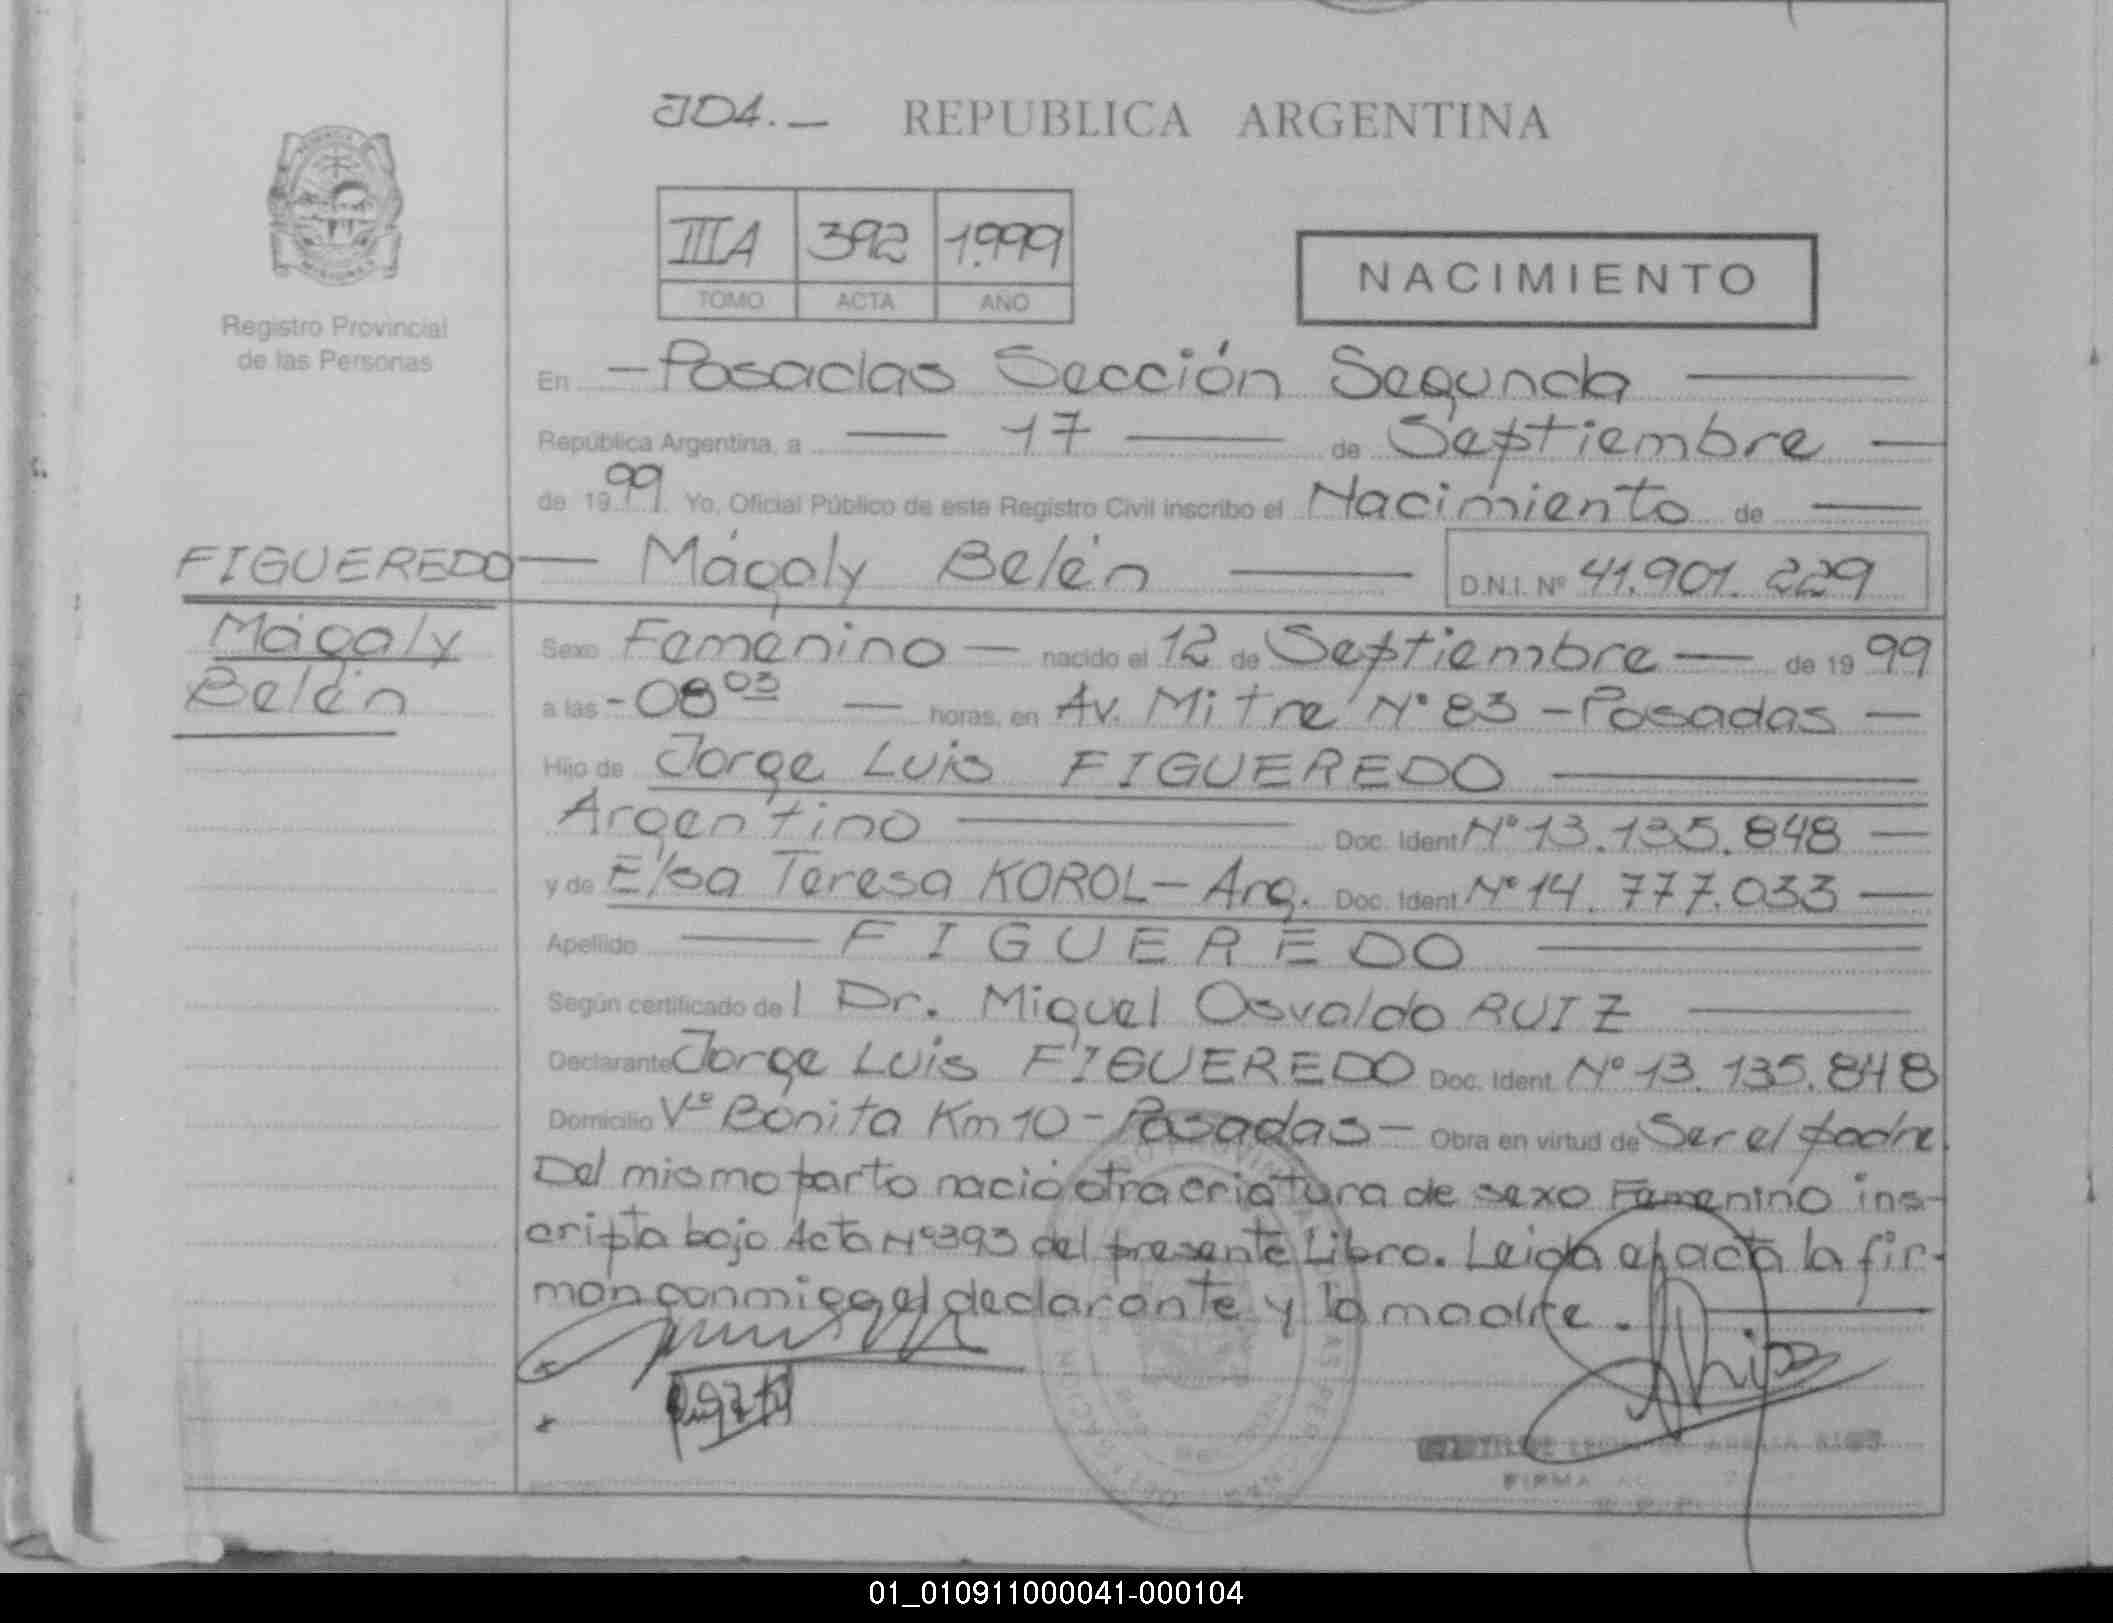 JD1.- REPUBLICA ARGENTINA
IIIA 392 1.999
TOMO ACTA AÑO
NACIMIENTO
Registro Provincial
de las Personas
En - Posadas Sección Segunda
República Argentina, a 17 de Septiembre
de 1999 Yo, Oficial Público de este Registro Civil inscribo el Nacimiento de
FIGUEREDO Mágaly Belén D.N.I. Nº 41.901.229
Mágaly
Belén
Sexo Femenino nacido el 12 de Septiembre de 1999
a las - 08 03 horas, en Av. Mitre Nº 83 - Posadas
Hijo de Jorge Luis FIGUEREDO
Argentino Doc. Ident Nº 13.135.848
y de Elsa Teresa KOROL - Arg. Doc. Ident Nº 14.777.033
Apellido FIGUEREDO
Según certificado del Dr. Miguel Osvaldo RUIZ
Declarante Jorge Luis FIGUEREDO Doc. Ident. Nº 13.135.848
Domicilio Vª Bonita Km 10 - Posadas - Obra en virtud de Ser el padre.
Del mismo parto nació otra criatura de sexo Femenino ins-
cripta bajo Acta Nº 393 del presente Libro. Leida el acta la fir-
man conmigo el declarante y la madre.
FIRMA
01_010911000041-000104